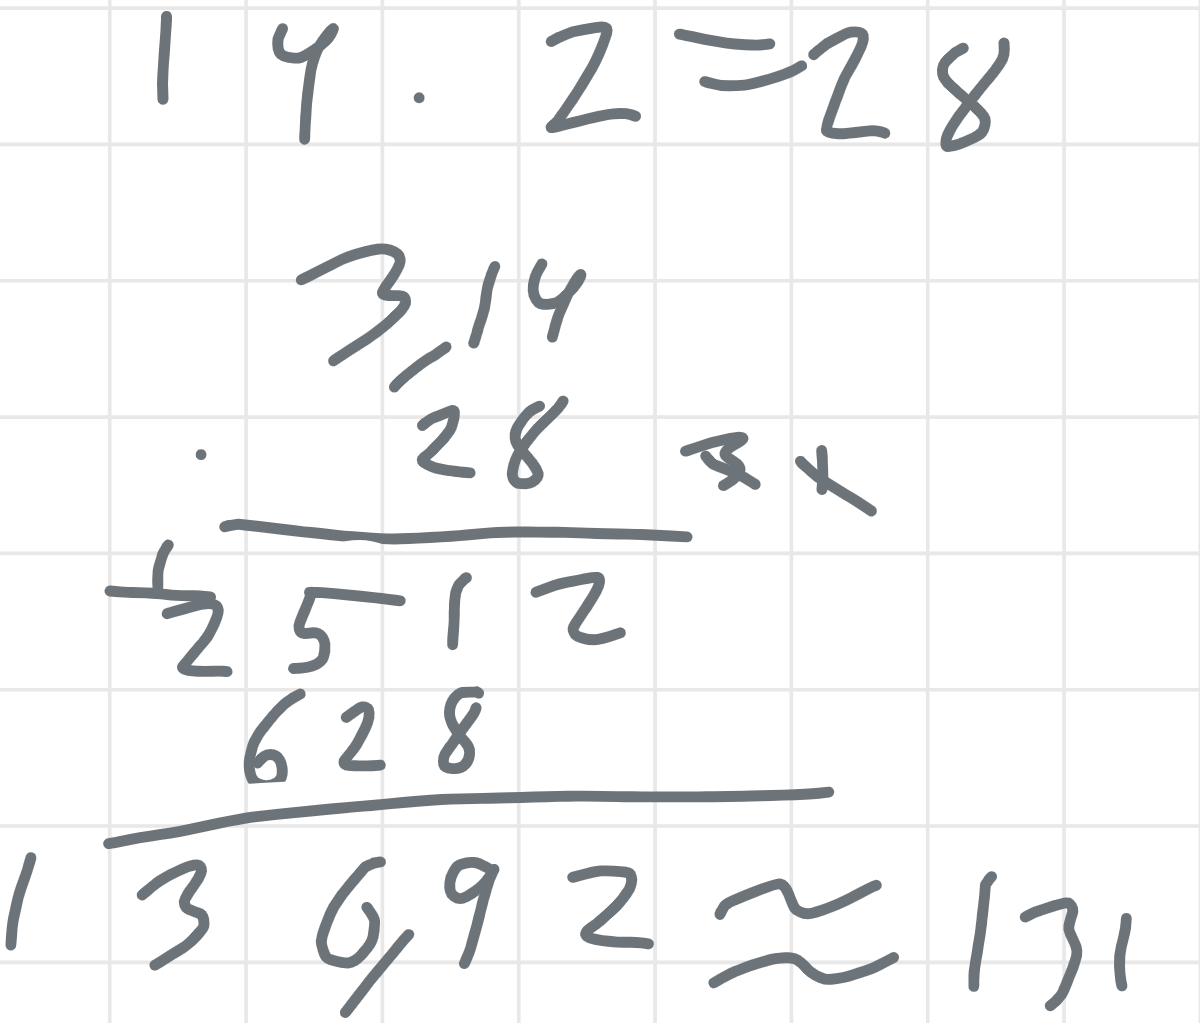 14 . 2 = 28
3,14
. 28
1
2512
628
136,92 ≈ 131